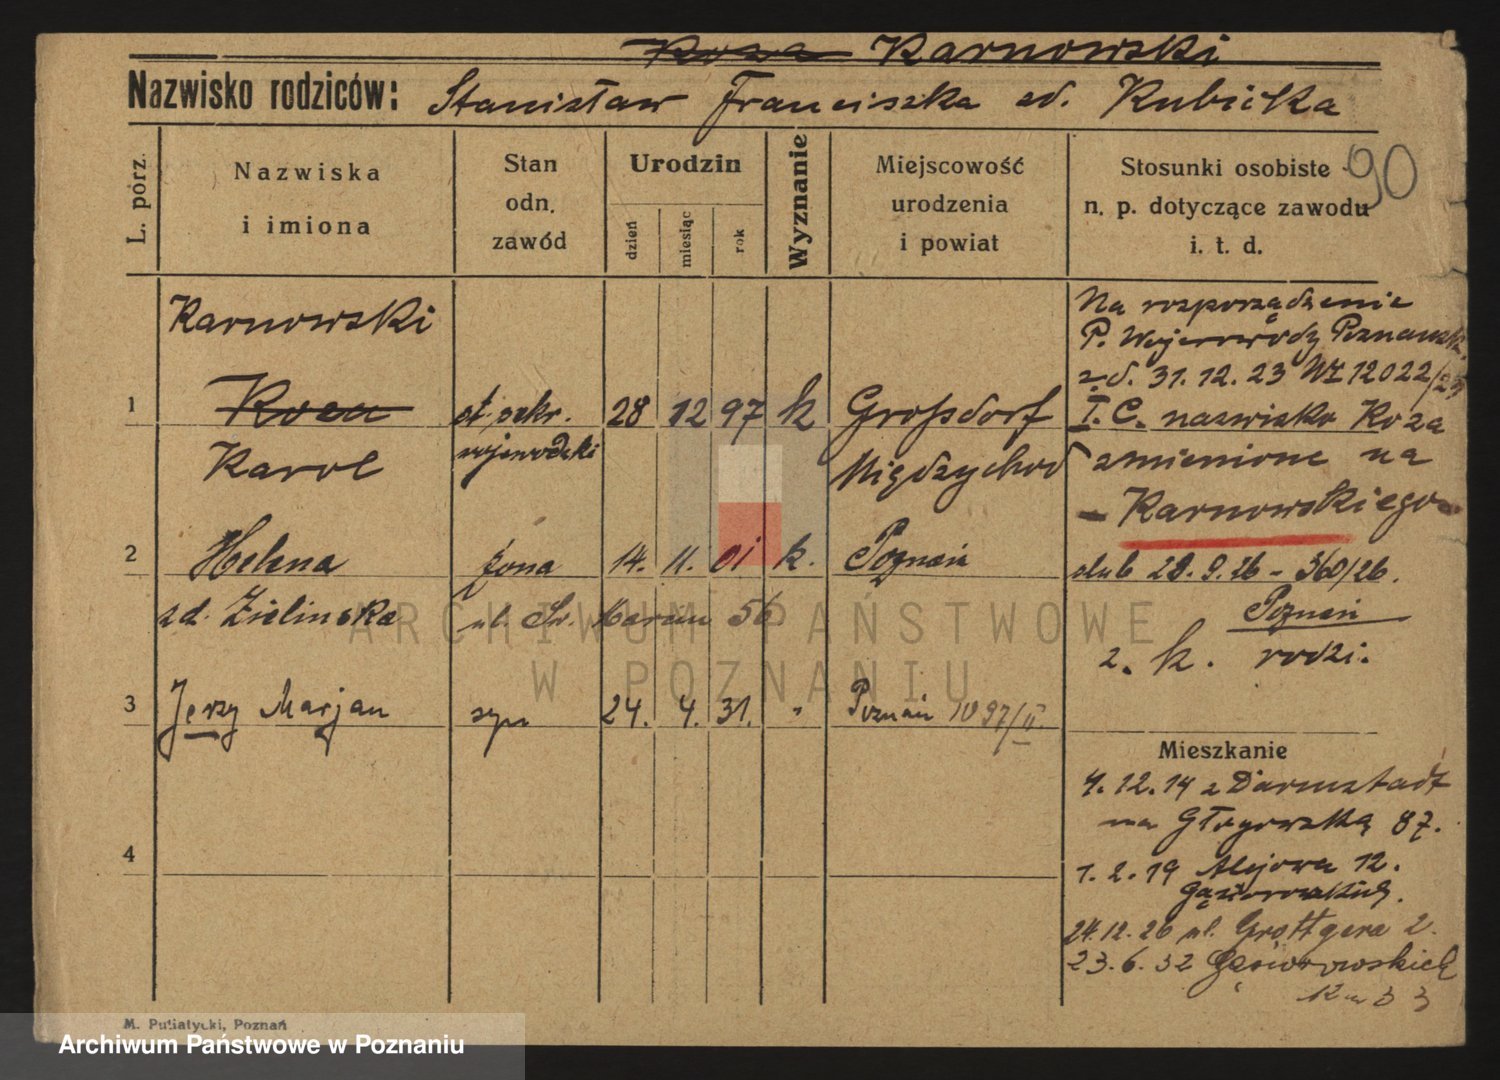 Koza Karnowski
Nazwisko rodziców: Stanisław Franciszka zd. Kubicka
L. porz.
Nazwiska
i imiona
Stan
odn.
zawód
Urodzin
dzień
miesiąc
rok
Wyznanie
Miejscowość
urodzenia
i powiat
Stosunki osobiste
n. p. dotyczące zawodu
i. t. d.
90
Karnowski
1 Koza st. sekr. 28 12 97 k Großdorf
Karol wojewodzki Międzychod
2 Helena żona 14. 11. 01 k. Poznań
zd. Zielinska ul. Św. Marcin 56
3 Jerzy Marjan syn 24. 4. 31. " Poznań 1097/II.
4
Na rozporządzenie
P. Wojewody Poznańsk.
z d. 31. 12. 23 12022/23
I. C. nazwisko Koza
zmienione na
- Karnowskiego
ślub 28. 9. 26 - 360/26.
Poznań
2. k. rodzi.
Mieszkanie
4. 12. 14 z Darmstadt
na Głogowską 87.
1. 2. 19 Alejowa 12.
Gąsiorowskich.
24. 12. 26 ul. Grottgera 2.
23. 6. 32 Gąsiorowskich
33
M. Putiatycki, Poznań
ARCHIWUM PAŃSTWOWE
W POZNANIU
Archiwum Państwowe w Poznaniu